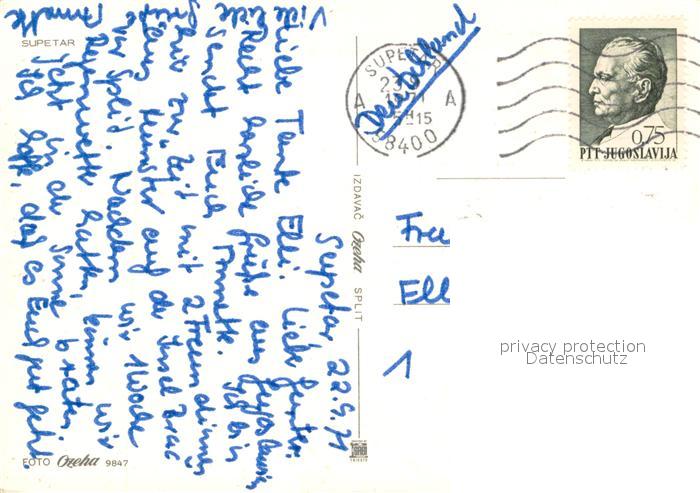 SUPETAR
Supetar 22.9.71
Liebe Tante Elli! Liebe
Recht herzliche Grüße aus
sendet Euch Annette. Ich bin
zur Zeit mit 2 Freundinnen
auf der Insel Brac
vor Split. Nachdem wir 1 Woche
Regenwetter hatten, können wir
jetzt in der Sonne braten.
Ich hoffe, daß es Euch gut geht
Viele
Grüße
Annette
FOTO Ozeha 9847
IZDAVAČ Ozeha SPLIT
Deutschland
SUPETAR
A A
15
58400
0,75
PTT-JUGOSLAVIJA
Frau
Ell
1
privacy protection
Datenschutz